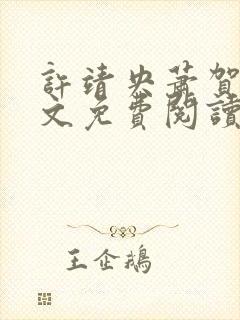 許靖央蕭賀
文免費閱讀
王企鵝